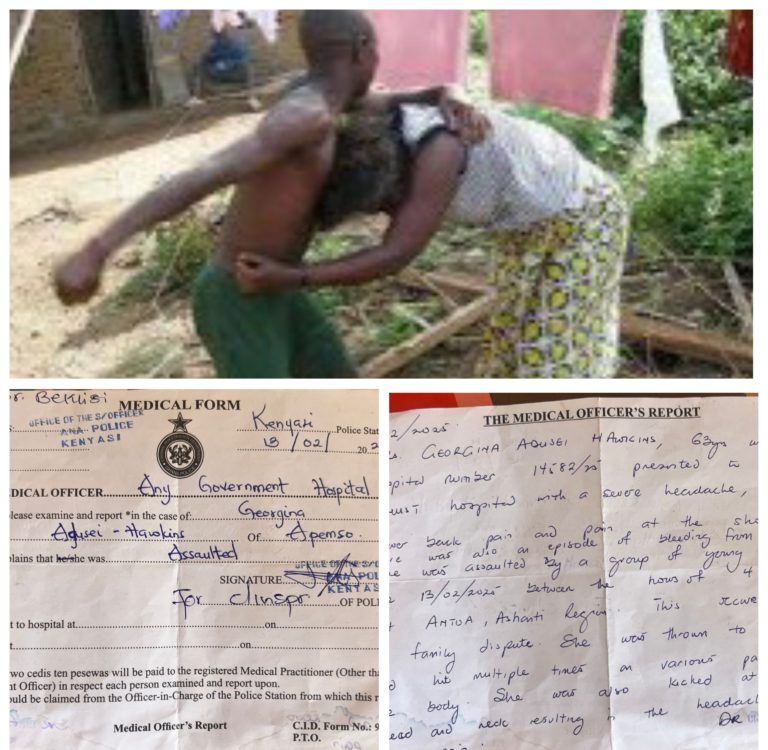 Beklisi
MEDICAL FORM
OFFICE OF THE S/OFFICER
ANA. POLICE
KENYASI
Kenyasi Police Stat
13/02/ 20.2
DICAL OFFICER Any Government Hospital
lease examine and report *in the case of: Georgina
Adusei-Hawkins Of Apemso.
plains that he/she was Assaulted
OFFICE OF THE S/O
ANA. POL
KENYAS
SIGNATURE
For C/Inspr OF POLI
t to hospital at on
t on
two cedis ten pesewas will be paid to the registered Medical Practitioner (Other tha
nt Officer) in respect each person examined and report upon.
ould be claimed from the Officer-in-Charge of the Police Station from which this r
Medical Officer's Report C.I.D. Form No.: 9
P.T.O.
THE MEDICAL OFFICER'S REPORT
2/2025.
GEORGINA ADUSEI HAWKINS, 63yrs w
spital number 14582/25 presented to
ust hospital with a severe headache,
wer back pain and pain at the sh
re was also an episode of bleeding from
e was assaulted by a group of young
13/02/2025 between the hours of 4
ANTOA, Ashanti Region. This
family dispute. She was thrown to
d hit multiple times on various pa
body. She was also kicked at
ead and neck resulting in the headach
DR